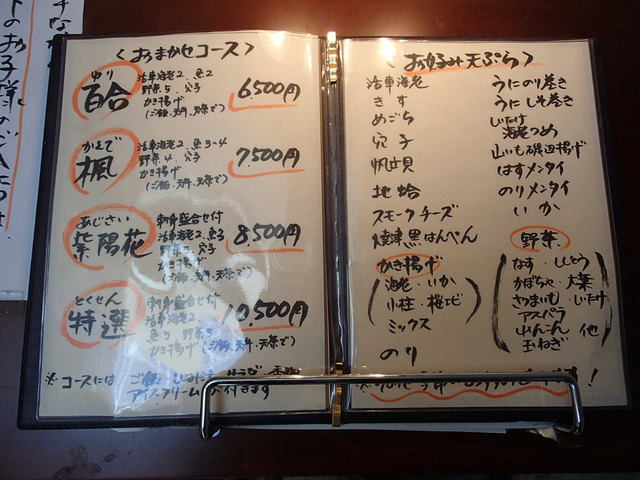 〈おまかせコース〉
ゆり
百合
活車海老2 魚2
野菜5 穴子
かき揚げ
(ご飯、天丼、天茶で)
6,500円
かえで
楓
活車海老2 魚3~4
野菜4 穴子
かき揚げ
(ご飯、天丼、天茶で)
7,500円
あじさい
紫陽花
刺身盛合せ付
活車海老2 魚3
穴子
かき揚げ
(ご飯、天丼、天茶で)
8,500円
とくせん
特選
刺身盛合せ付
活車海老
魚5 野菜
かき揚げ (ご飯、天丼、天茶で)
10,500円
※コースには ご飯
アイスクリームが付きます
〈お好み天ぷら〉
活車海老
きす
めごち
穴子
帆立貝
地蛤
スモークチーズ
焼津黒はんぺん
かき揚げ
(海老・いか
小柱・桜エビ
ミックス)
のり
うにのり巻き
うにしそ巻き
しいたけ
海老つめ
山いも磯辺揚げ
はすメンタイ
のりメンタイ
いか
野菜
(なす ししとう
かぼちゃ 大葉
さつまいも しいたけ
アスパラ
れんこん 他
玉ねぎ)